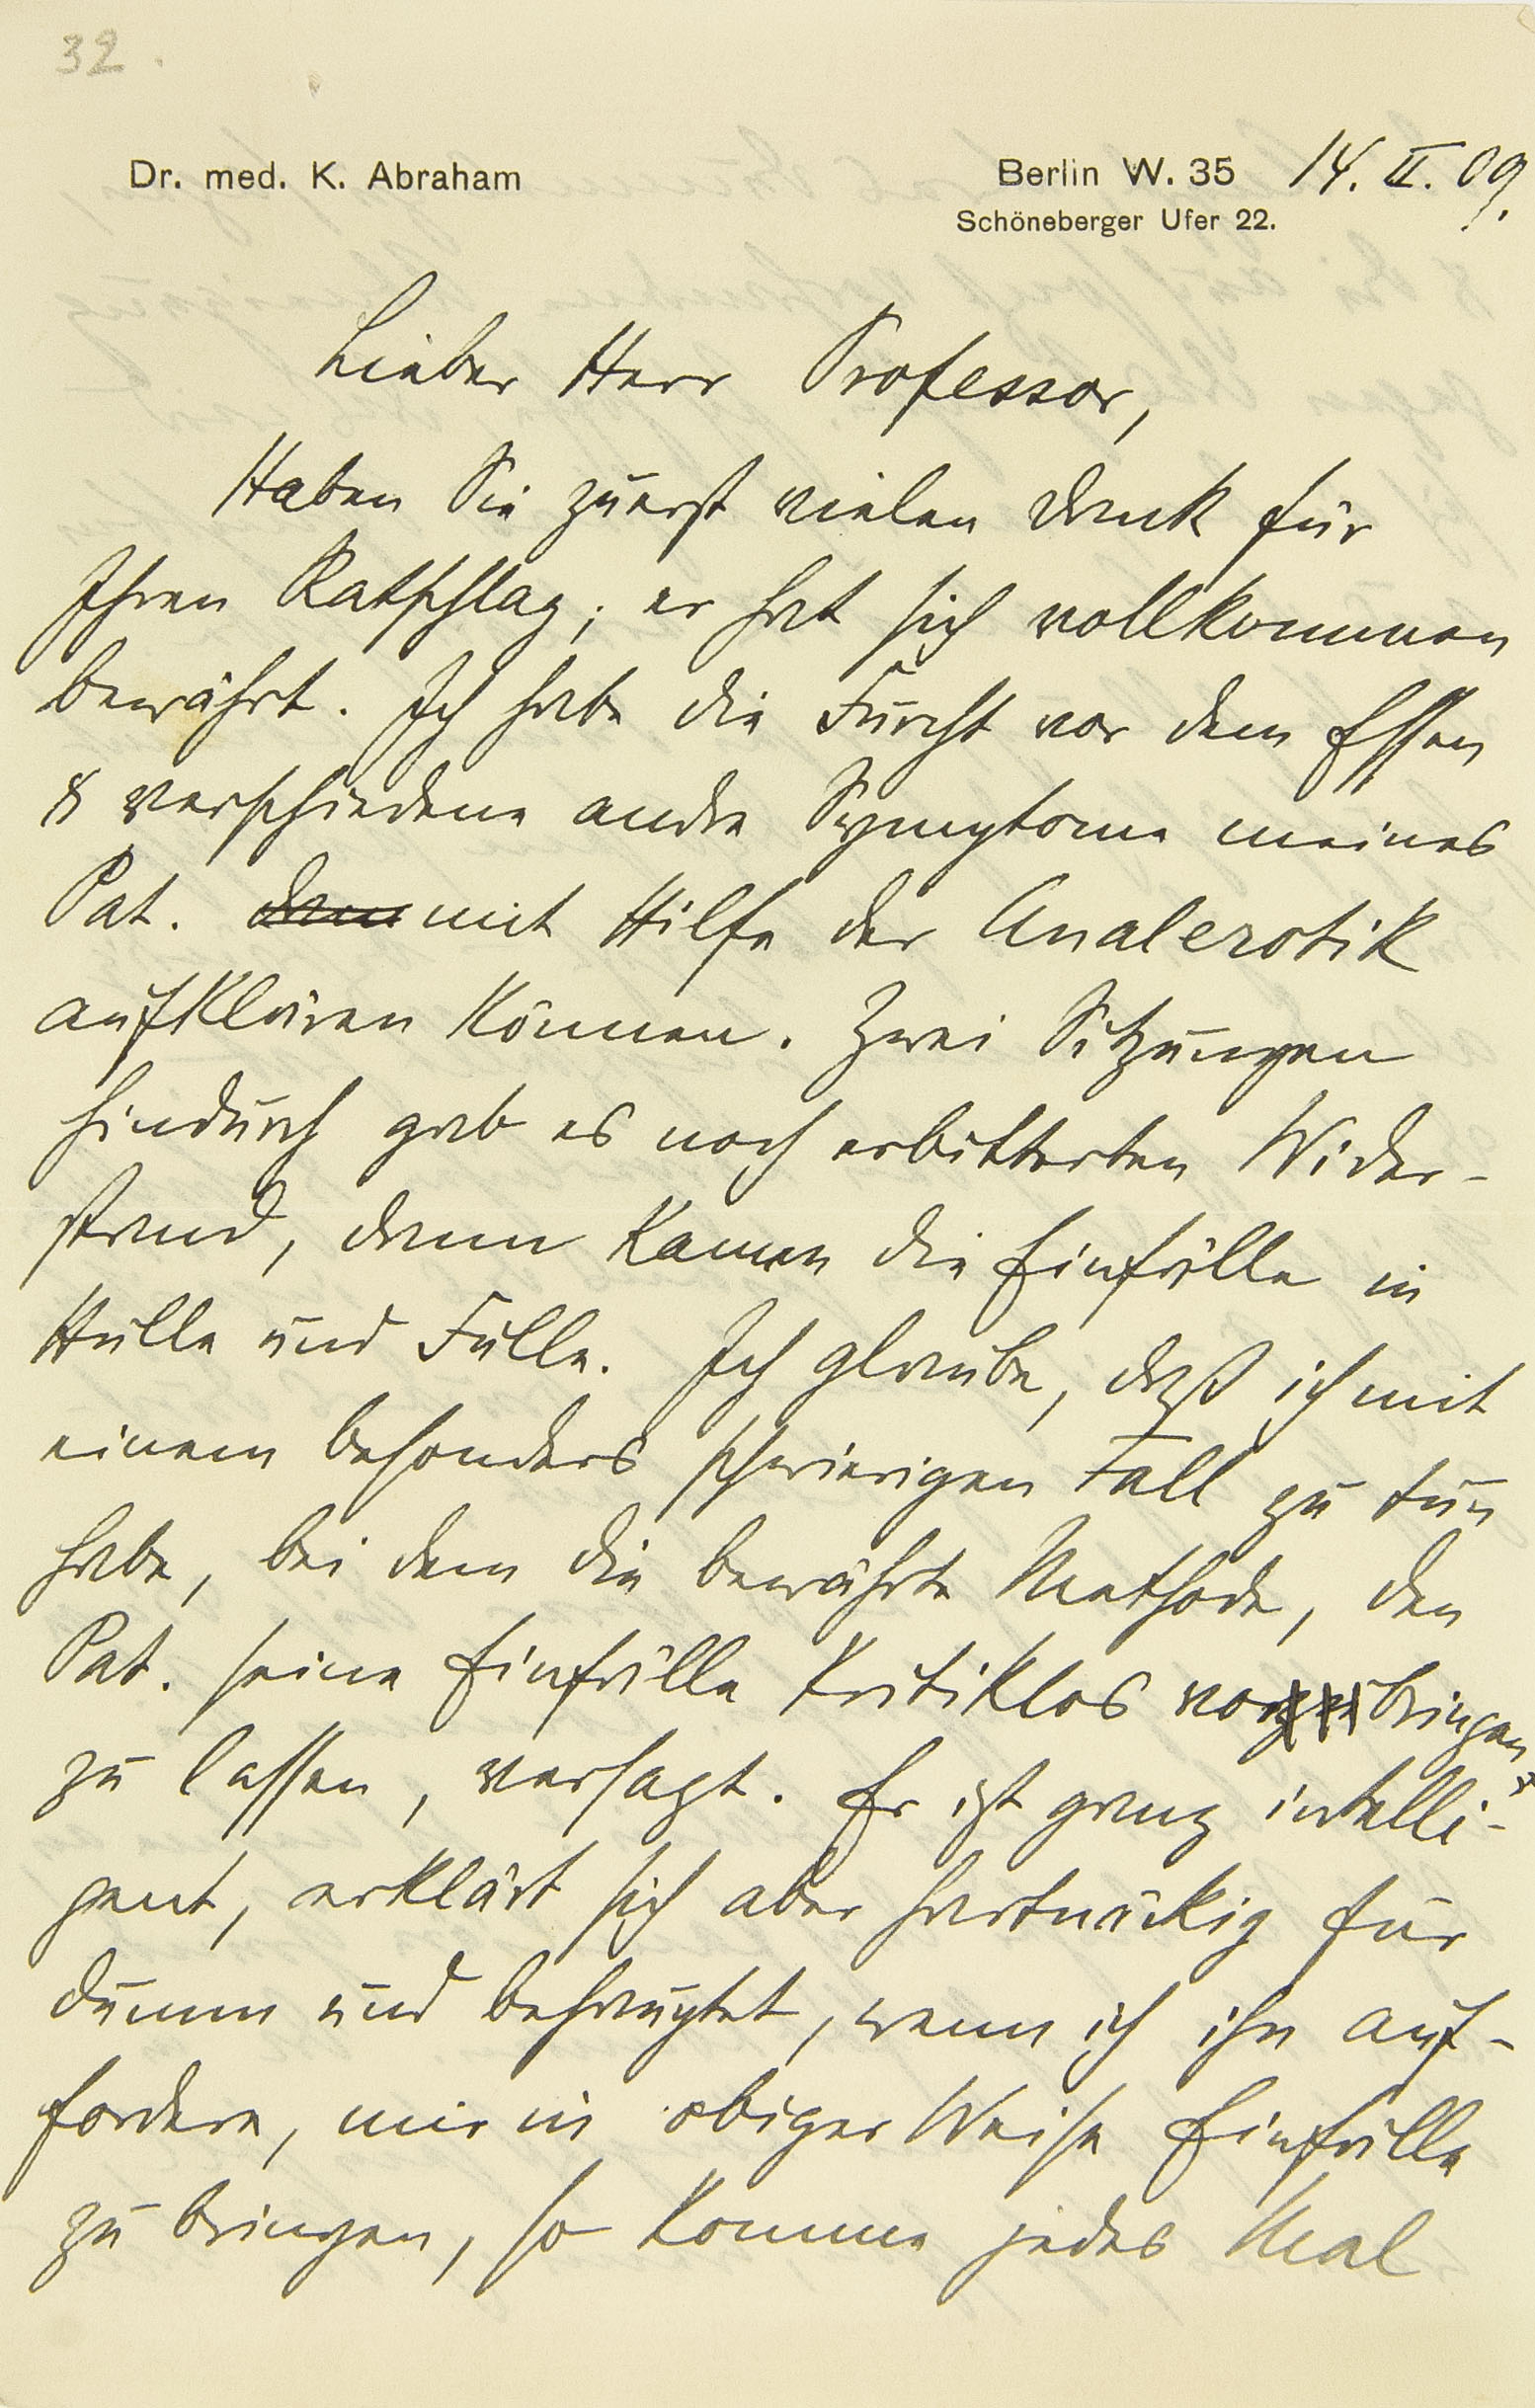 32.
Dr. med. K. Abraham
Berlin W. 35 14. II. 09.
Schöneberger Ufer 22.
Lieber Herr Professor,
Haben Sie zuerst vielen Dank für
Ihren Ratschlag; er hat sich vollkommen
bewährt. Ich habe die Furcht vor dem Essen
& verschiedene andre Symptome meines
Pat. dann mit Hilfe der Analerotik
aufklären können. Zwei Sitzungen
hindurch gab es noch erbitterten Wider-
stand, dann kamen die Einfälle in
Hülle und Fülle. Ich glaube, daß ich mit
einem besonders schwierigen Fall zu tun
habe, bei dem die bewährte Methode, den
Pat. seine Einfälle kritiklos vorbringen
zu lassen, versagt. Er ist ganz intelli-
gent, erklärt sich aber hartnäckig für
dumm und behauptet, wenn ich ihn auf-
fordere, mir in obiger Weise Einfälle
zu bringen, so komme jedes Mal